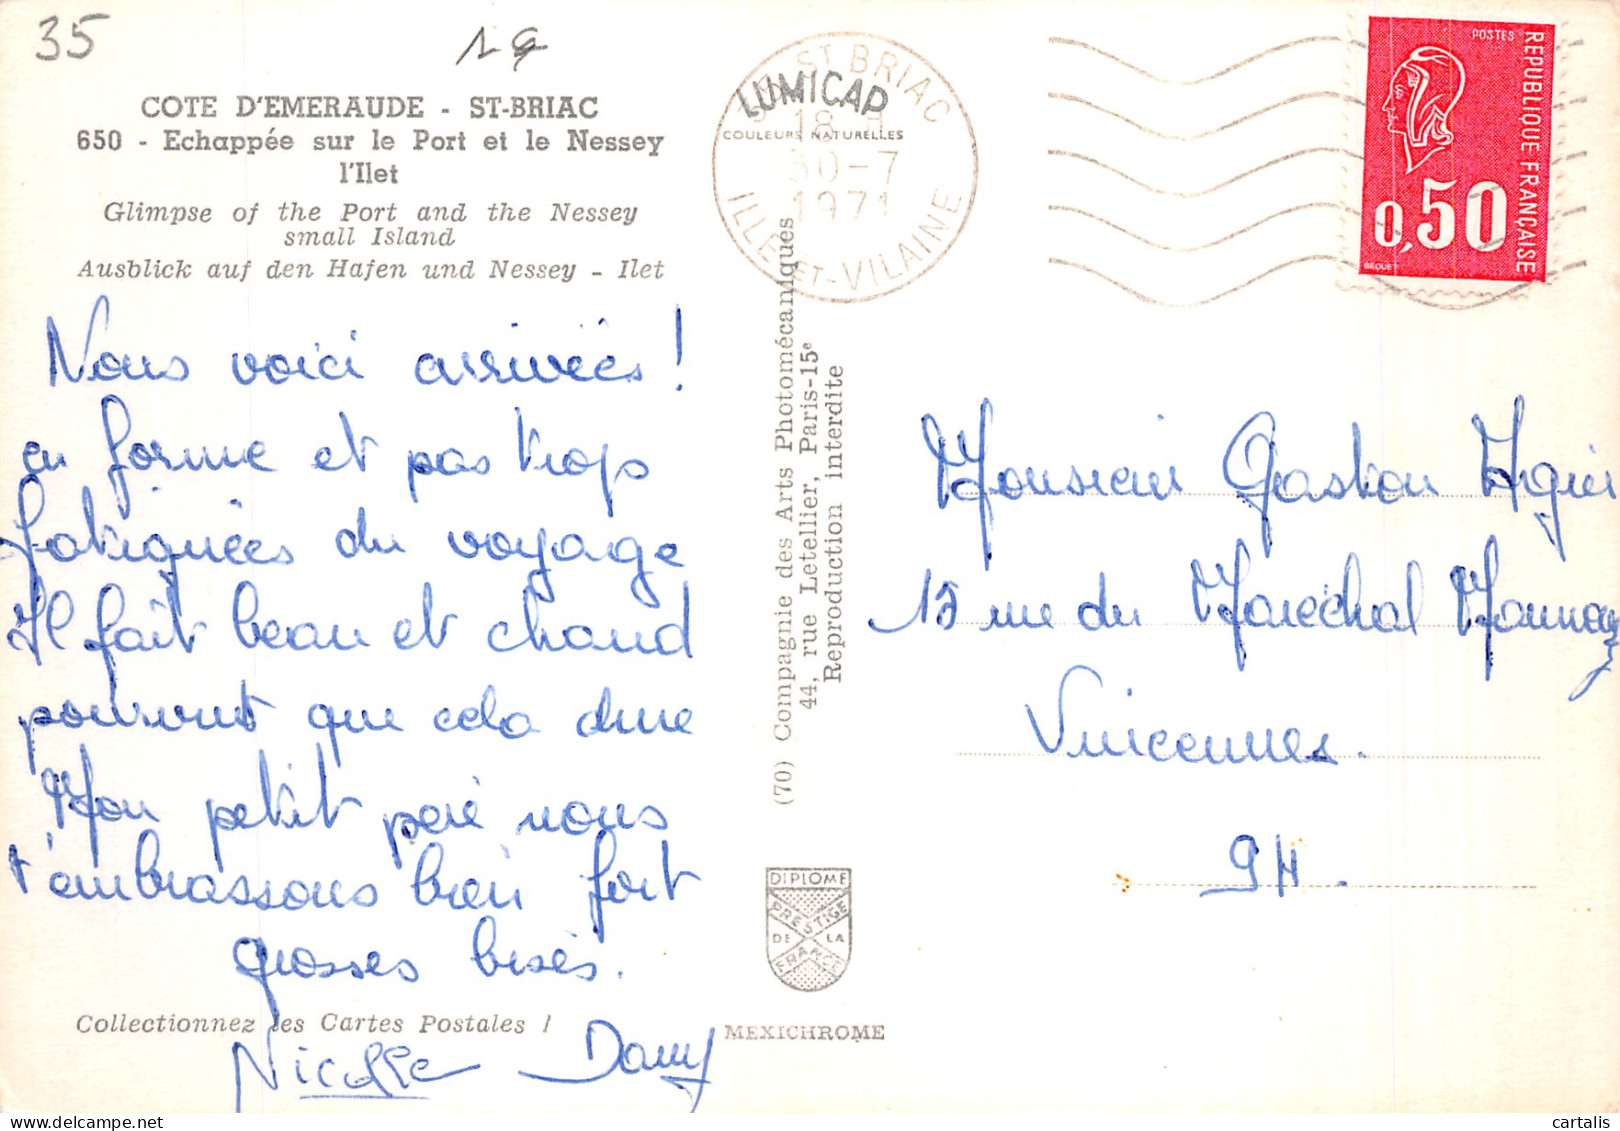 35
COTE D'EMERAUDE - ST-BRIAC
650 - Echappée sur le Port et le Nessey
l'Ilet
Glimpse of the Port and the Nessey
small Island
Ausblick auf den Hafen und Nessey - Ilet
Nous voici arrivées !
en forme et pas trop
fatiguées du voyage
Il fait beau et chaud
pourvut que cela dure
Mon petit peré nous
t'embrassons bien fort
grosses bises.
Nicolle Dany
Collectionnez les Cartes Postales !
LUMICAP
COULEURS NATURELLES
ST BRIAC
18 H
30-7
1971
ILLE-ET-VILAINE
(70) Compagnie des Arts Photomécaniques
44, rue Letellier, Paris-15e
Reproduction interdite
DIPLOME
PRESTIGE
DE LA
FRANCE
MEXICHROME
POSTES
REPUBLIQUE FRANÇAISE
0,50
BEQUET
Monsieur Gaston
15 rue du Marechal
Vincennes.
94.
cartalis
delcampe.net